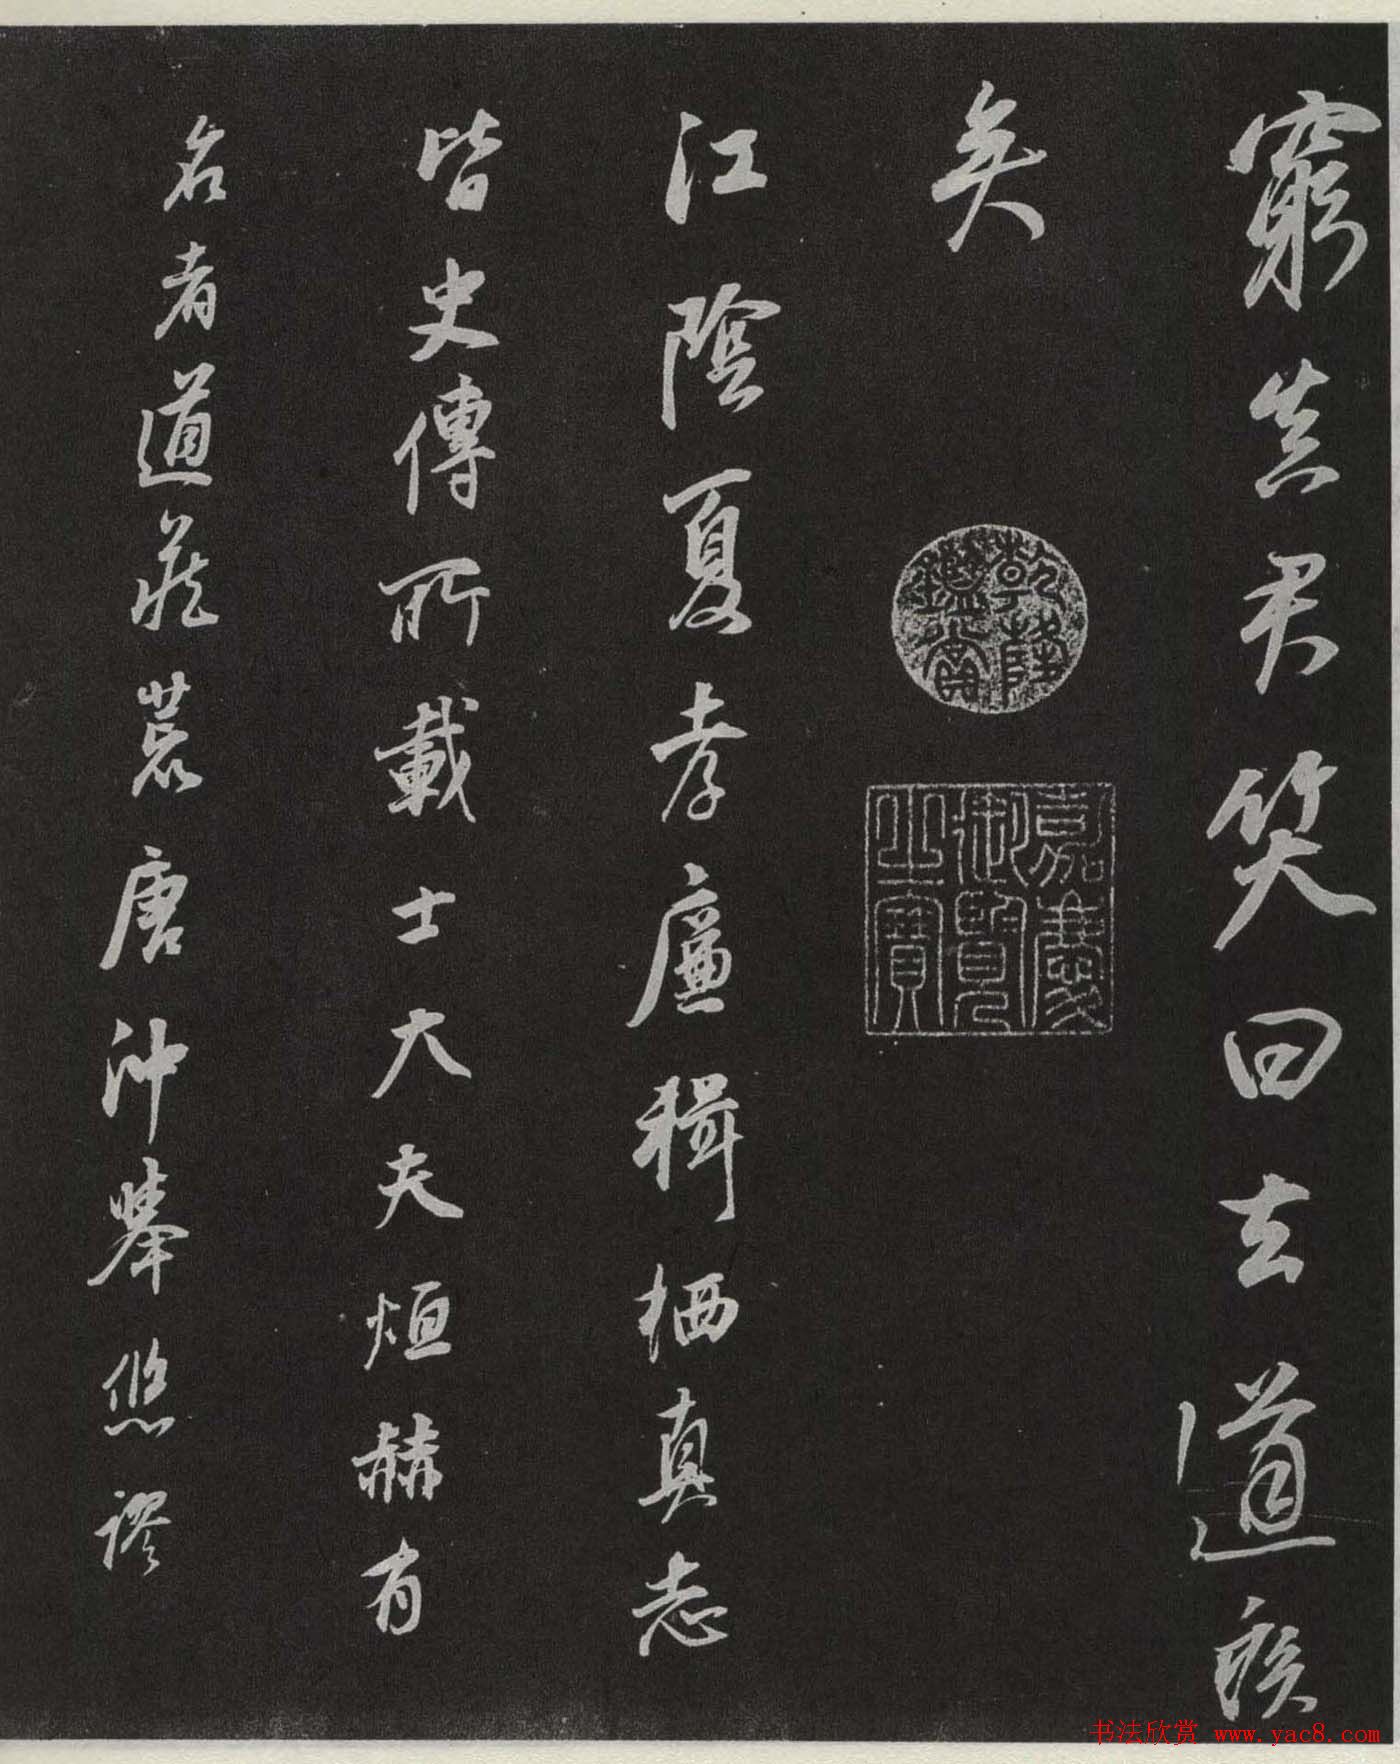 窮真君笑曰去道
矣
乾隆鑑賞
嘉慶御覽之寶
江陰夏孝廉輯栖真志
皆史傳所載士大夫烜赫有
名者道藏荒唐沖舉悠謬
书法欣赏 www.yac8.com